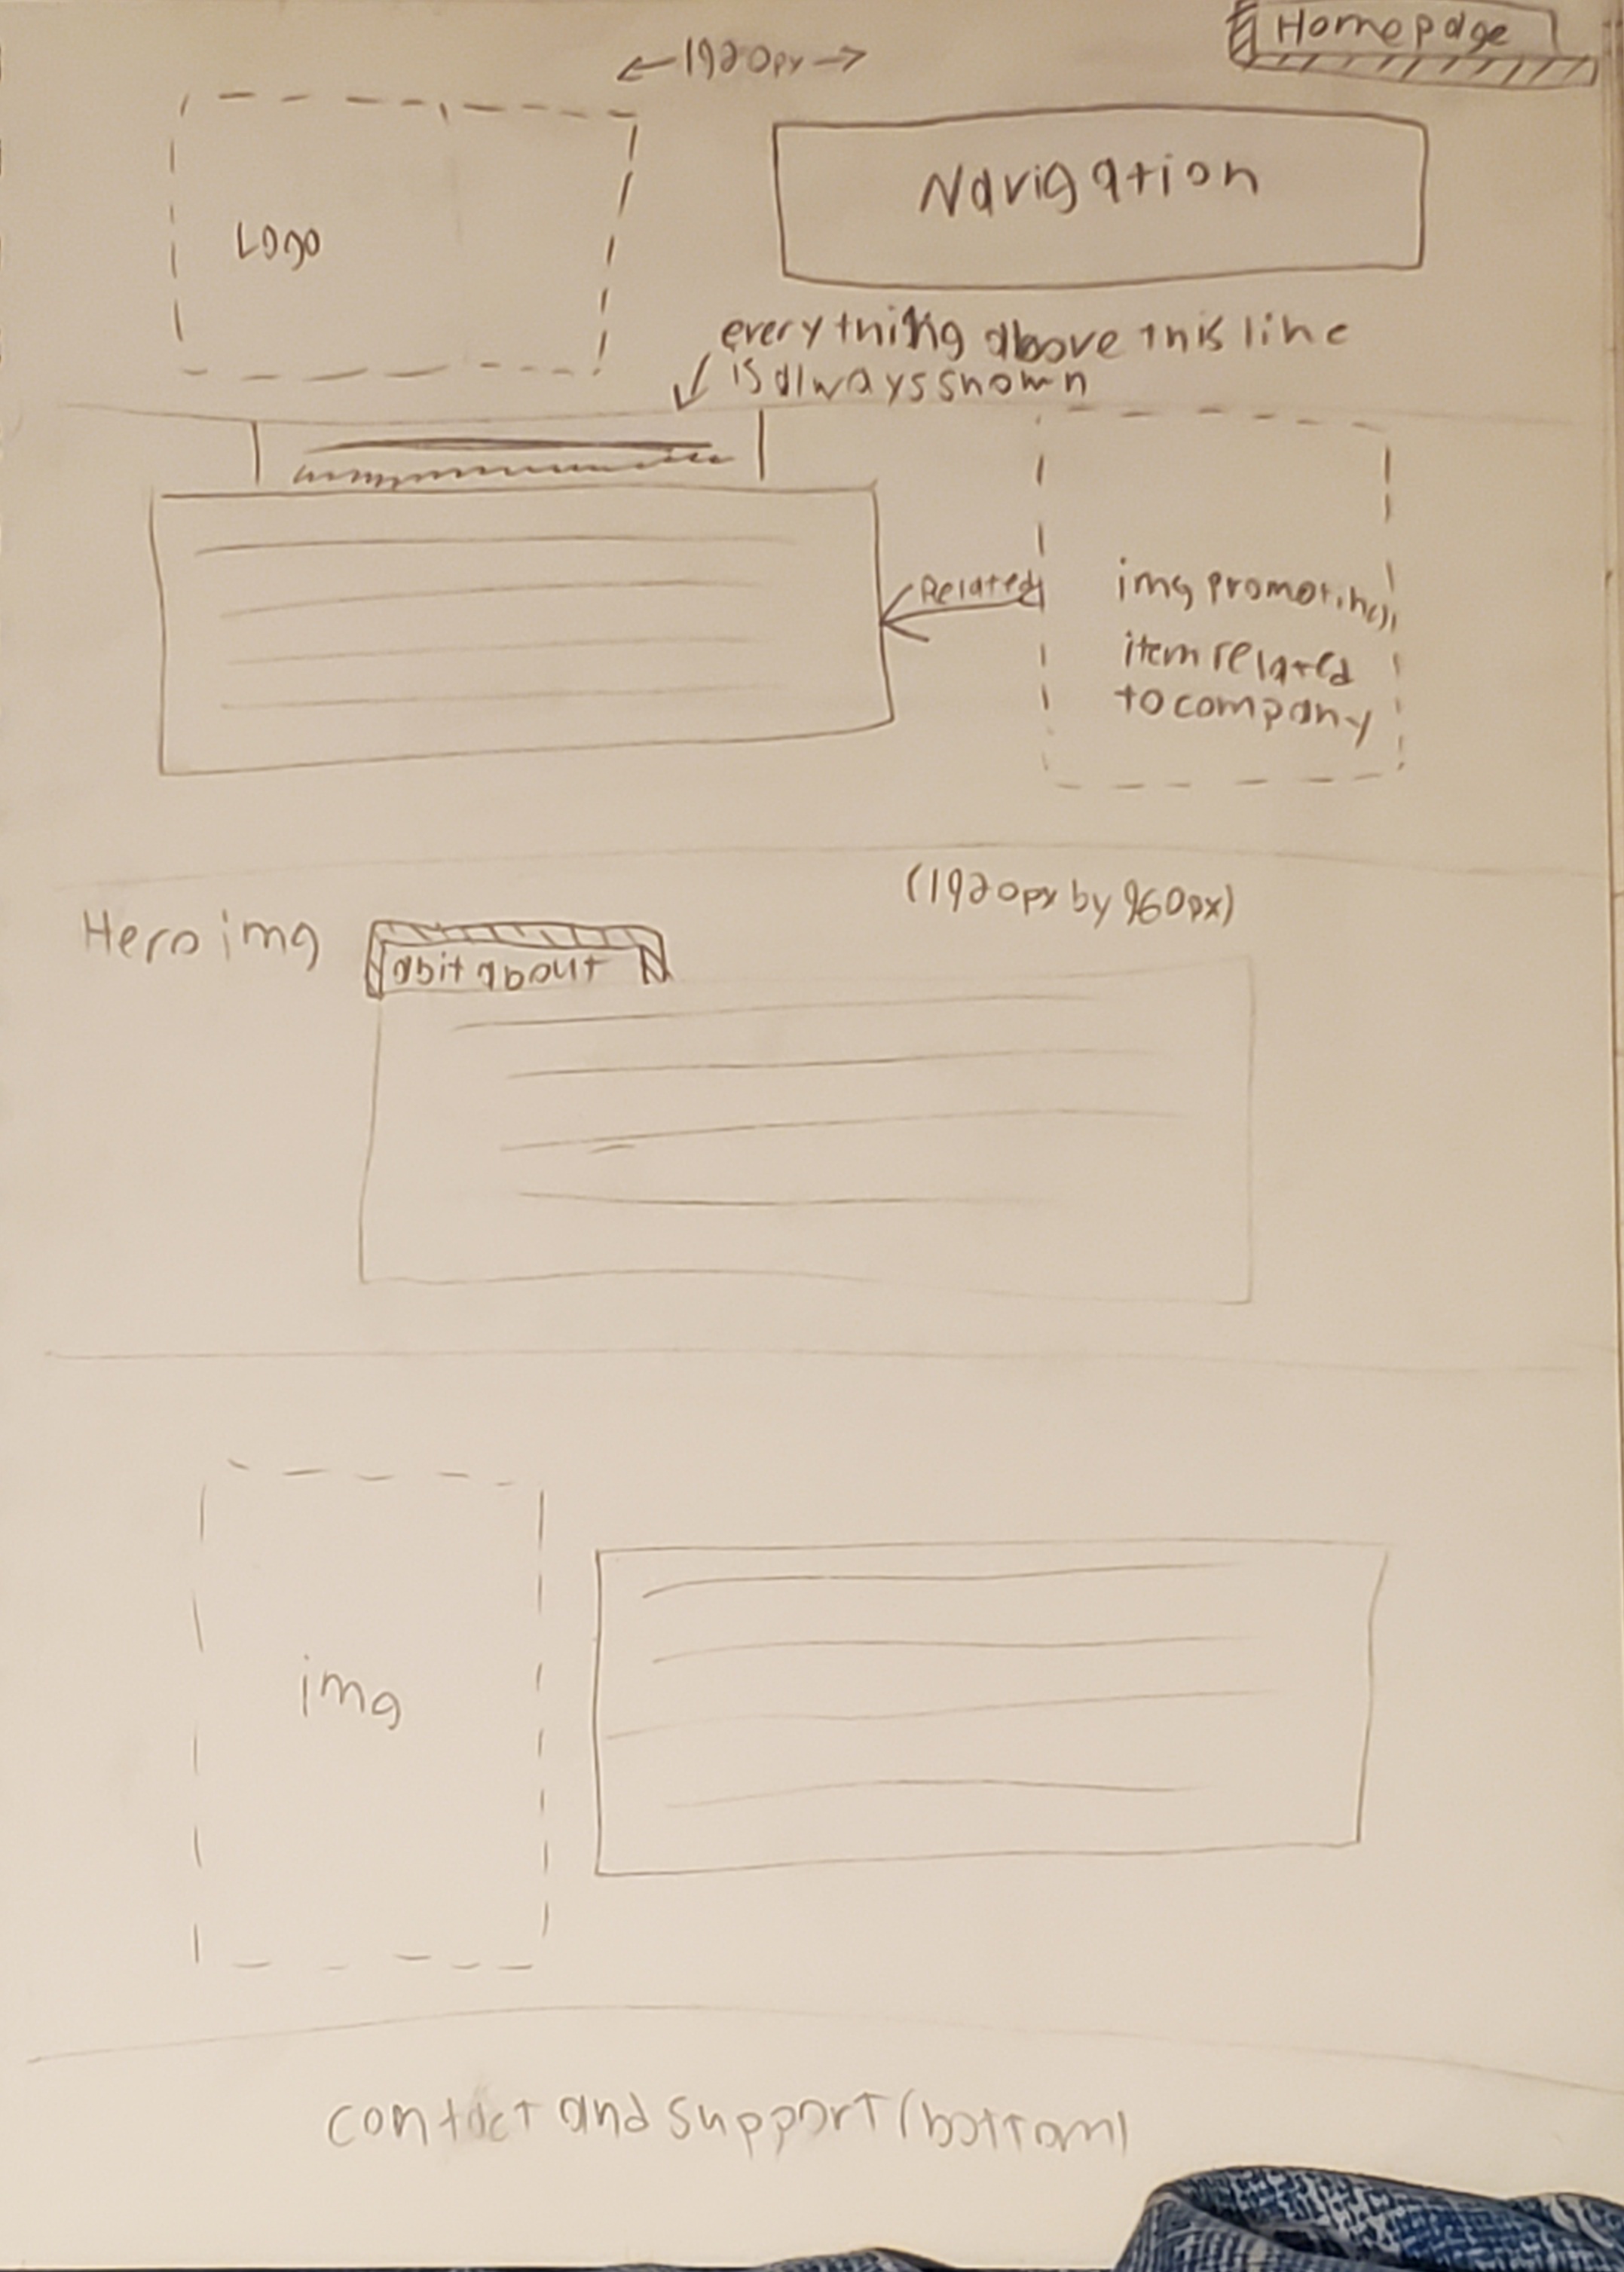 Homepage
←1920px→
Logo
Navigation
everything above this line
is always shown
Related
img promoting
item related
to company
(1920px by 960px)
Hero img
abit about
img
contact and support (bottom)